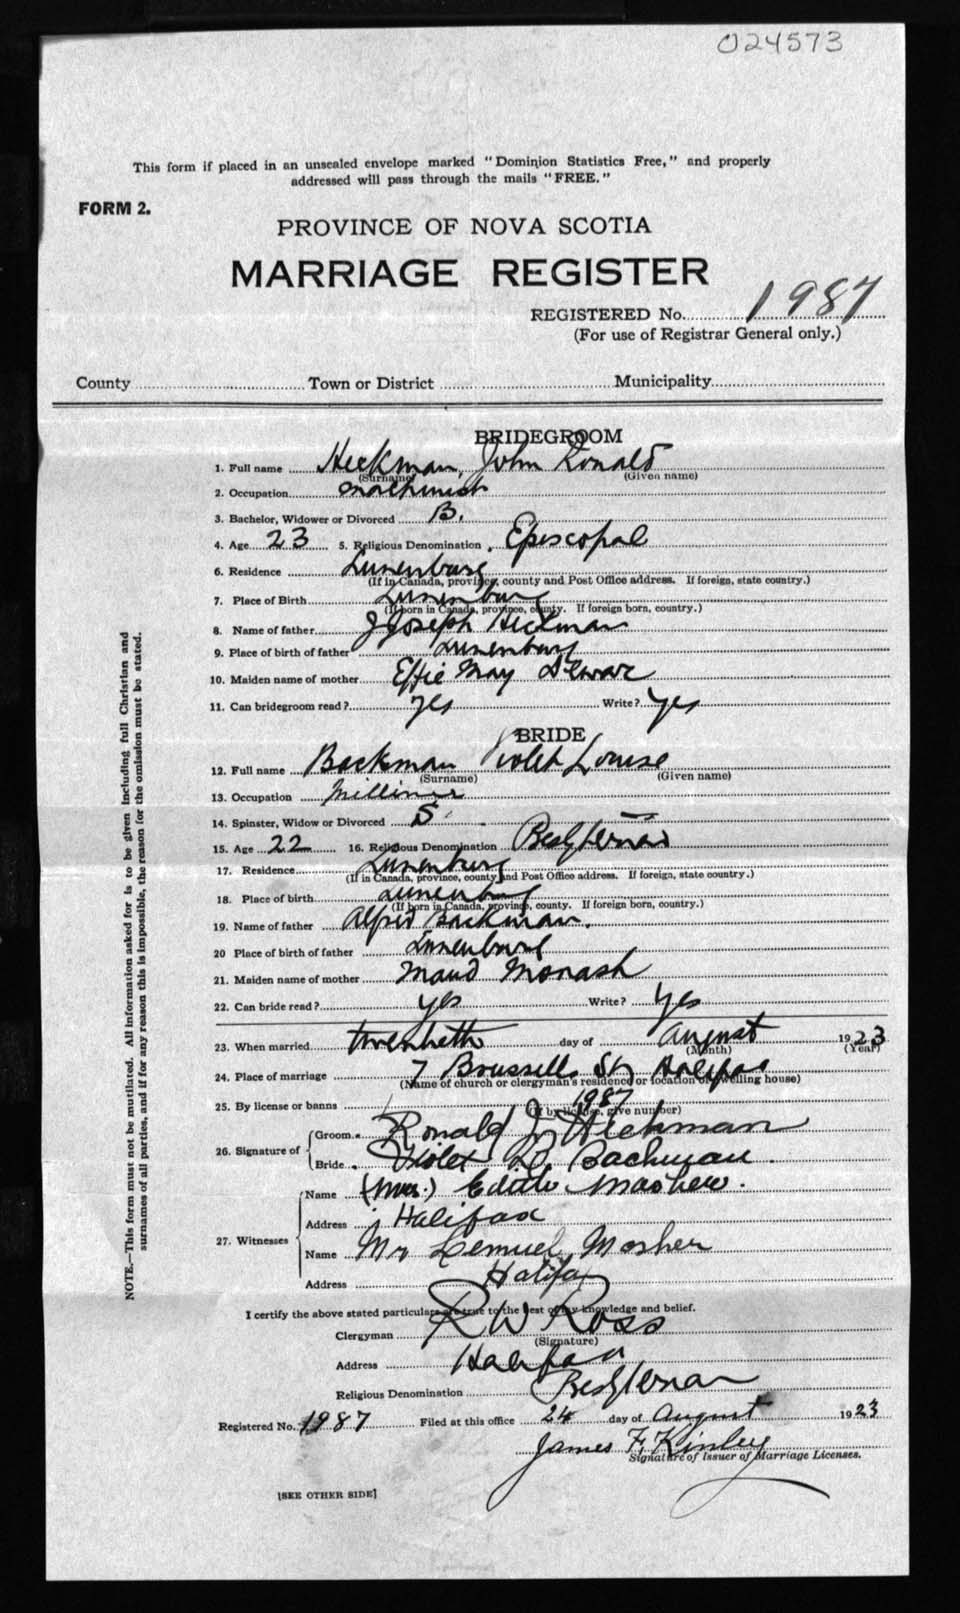 024573
This form if placed in an unsealed envelope marked "Dominion Statistics Free," and properly
addressed will pass through the mails "FREE."
FORM 2.
PROVINCE OF NOVA SCOTIA
MARRIAGE REGISTER
REGISTERED No. 1987
(For use of Registrar General only.)
County Town or District Municipality
BRIDEGROOM
1. Full name Heckman, John Ronald
(Surname) (Given name)
2. Occupation machinist
3. Bachelor, Widower or Divorced B.
4. Age 23 5. Religious Denomination Episcopal
6. Residence Lunenburg
(If in Canada, province, county and Post Office address. If foreign, state country.)
7. Place of Birth Lunenburg
(If born in Canada, province, county. If foreign born, country.)
8. Name of father J Joseph Heckman
9. Place of birth of father Lunenburg
10. Maiden name of mother Effie May Dewar
11. Can bridegroom read? yes Write? yes
BRIDE
12. Full name Backman Violet Louise
(Surname) (Given name)
13. Occupation Milliner
14. Spinster, Widow or Divorced S
15. Age 22 16. Religious Denomination Presbyterian
17. Residence Lunenburg
(If in Canada, province, county and Post Office address. If foreign, state country.)
18. Place of birth Lunenburg
(If born in Canada, province, county. If foreign born, country.)
19. Name of father Alfred Backman.
20 Place of birth of father Lunenburg
21. Maiden name of mother Maud Monash
22. Can bride read? yes Write? yes
23. When married twentieth day of August 1923
(Month) (Year)
24. Place of marriage 7 Brussells St, Halifax
(Name of church or clergyman's residence or location of dwelling house)
25. By license or banns 1987
(If by license, give number)
26. Signature of Groom Ronald J. Heckman
Bride Violet L. Backman.
27. Witnesses
Name (Mrs.) Edith
Address Halifax
Name Mr Lemuel Mosher
Address Halifax
I certify the above stated particulars are true to the best of my knowledge and belief.
Clergyman R W Ross
(Signature)
Address Halifax
Religious Denomination Presbyterian
Registered No. 1987 Filed at this office 24 day of August 1923
James F. Kinley
Signature of Issuer of Marriage Licenses.
[SEE OTHER SIDE]
NOTE.—This form must not be mutilated. All information asked for is to be given including full Christian and
surnames of all parties, and if for any reason this is impossible, the reason for the omission must be stated.